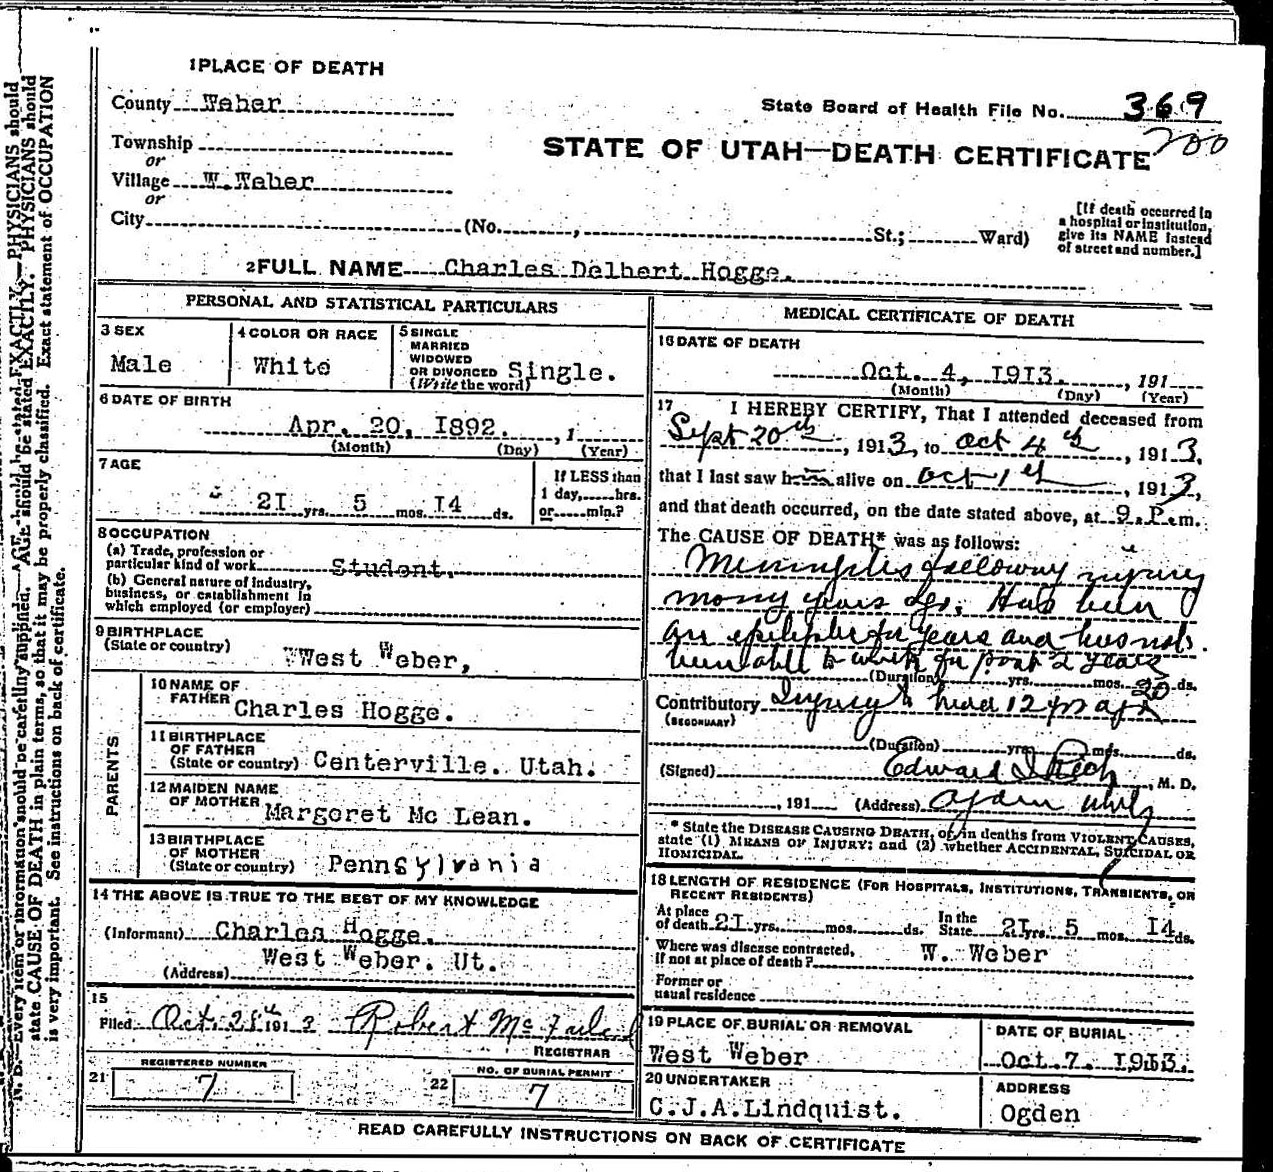 1 PLACE OF DEATH
County Weber
State Board of Health File No. 369
200
Township
or
STATE OF UTAH—DEATH CERTIFICATE
Village W. Weber
or
City (No. , St.; Ward)
[If death occurred in a hospital or institution, give its NAME instead of street and number.]
2 FULL NAME Charles Delbert Hogge.
PERSONAL AND STATISTICAL PARTICULARS
3 SEX
Male
4 COLOR OR RACE
White
5 SINGLE
MARRIED
WIDOWED
OR DIVORCED
(Write the word)
Single.
6 DATE OF BIRTH
Apr. 20, I892. , 1
(Month) (Day) (Year)
7 AGE
2I yrs. 5 mos. I4 ds.
If LESS than
1 day, hrs.
or min.?
8 OCCUPATION
(a) Trade, profession or
particular kind of work Student.
(b) General nature of industry,
business, or establishment in
which employed (or employer)
9 BIRTHPLACE
(State or country) West Weber,
PARENTS
10 NAME OF
FATHER Charles Hogge.
11 BIRTHPLACE
OF FATHER
(State or country) Centerville. Utah.
12 MAIDEN NAME
OF MOTHER Margoret Mc Lean.
13 BIRTHPLACE
OF MOTHER
(State or country) Pennsylvania
14 THE ABOVE IS TRUE TO THE BEST OF MY KNOWLEDGE
(Informant) Charles Hogge.
West Weber. Ut.
(Address)
15
Filed Oct. 28th 191 3 Robert McFarland
REGISTRAR
REGISTERED NUMBER
21 7
NO. OF BURIAL PERMIT
22 7
MEDICAL CERTIFICATE OF DEATH
16 DATE OF DEATH
Oct. 4, I9I3. , 191
(Month) (Day) (Year)
17 I HEREBY CERTIFY, That I attended deceased from
Sept 20th , 1913, to Oct 4th , 1913,
that I last saw him alive on Oct 1st , 1913,
and that death occurred, on the date stated above, at 9. P. m.
The CAUSE OF DEATH* was as follows:
Meningitis following injury
many years ago. Has been
an epileptic for years and has not
been able to work for past 2 years
(Duration) yrs. mos. 20 ds.
Contributory Injury to head 12 yrs ago
(SECONDARY)
(Duration) yrs. mos. ds.
(Signed) Edward I Rich , M. D.
, 191 (Address) Ogden Utah
* State the DISEASE CAUSING DEATH, or, in deaths from VIOLENT CAUSES,
state (1) MEANS OF INJURY; and (2) whether ACCIDENTAL, SUICIDAL OR
HOMICIDAL.
18 LENGTH OF RESIDENCE (FOR HOSPITALS, INSTITUTIONS, TRANSIENTS, OR
RECENT RESIDENTS)
At place
of death 2I yrs. mos. ds. In the
State 2I yrs. 5 mos. I4 ds.
Where was disease contracted,
if not at place of death? W. Weber
Former or
usual residence
19 PLACE OF BURIAL OR REMOVAL
West Weber
DATE OF BURIAL
Oct. 7. I9I3.
20 UNDERTAKER
C.J.A.Lindquist.
ADDRESS
Ogden
READ CAREFULLY INSTRUCTIONS ON BACK OF CERTIFICATE
N. B.—Every item of information should be carefully supplied. AGE should be stated EXACTLY. PHYSICIANS should
state CAUSE OF DEATH in plain terms, so that it may be properly classified. Exact statement of OCCUPATION
is very important. See instructions on back of certificate.